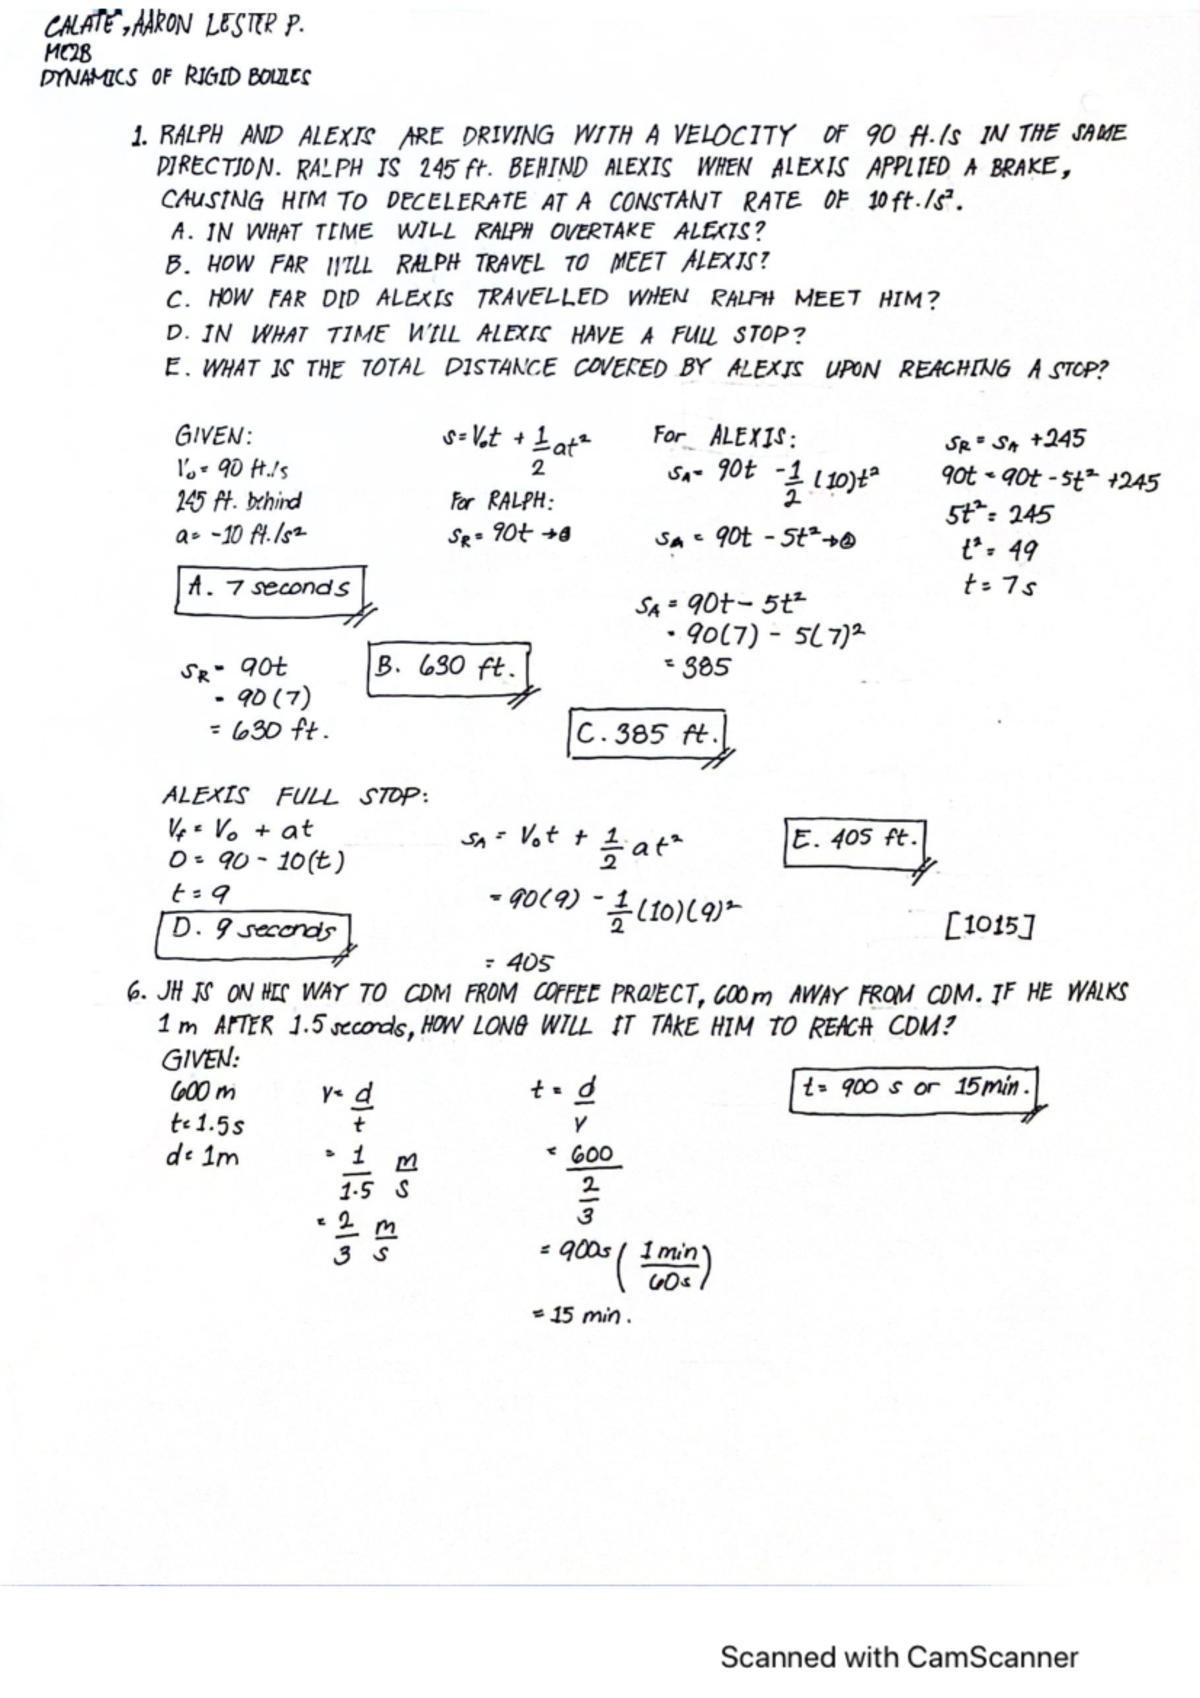 CALATE, AARON LESTER P.
ME2B
DYNAMICS OF RIGID BODIES
1. RALPH AND ALEXIS ARE DRIVING WITH A VELOCITY OF 90 ft./s IN THE SAME
DIRECTION. RALPH IS 245 ft. BEHIND ALEXIS WHEN ALEXIS APPLIED A BRAKE,
CAUSING HIM TO DECELERATE AT A CONSTANT RATE OF 10 ft./s².
A. IN WHAT TIME WILL RALPH OVERTAKE ALEXIS?
B. HOW FAR WILL RALPH TRAVEL TO MEET ALEXIS?
C. HOW FAR DID ALEXIS TRAVELLED WHEN RALPH MEET HIM?
D. IN WHAT TIME WILL ALEXIS HAVE A FULL STOP?
E. WHAT IS THE TOTAL DISTANCE COVERED BY ALEXIS UPON REACHING A STOP?
GIVEN:
V₀ = 90 ft./s
245 ft. behind
a = -10 ft./s²
A. 7 seconds
S = V₀t + 1/2 at²
For RALPH:
S_R = 90t → ①
For ALEXIS:
S_A = 90t - 1/2 (10)t²
S_A = 90t - 5t² → ②
S_R = S_A + 245
90t = 90t - 5t² + 245
5t² = 245
t² = 49
t = 7s
S_R = 90t
= 90(7)
= 630 ft.
B. 630 ft.
S_A = 90t - 5t²
= 90(7) - 5(7)²
= 385
C. 385 ft.
ALEXIS FULL STOP:
V_f = V₀ + at
0 = 90 - 10(t)
t = 9
D. 9 seconds
S_A = V₀t + 1/2 at²
= 90(9) - 1/2 (10)(9)²
= 405
E. 405 ft.
[1015]
6. JH IS ON HIS WAY TO CDM FROM COFFEE PROJECT, 600 m AWAY FROM CDM. IF HE WALKS
1 m AFTER 1.5 seconds, HOW LONG WILL IT TAKE HIM TO REACH CDM?
GIVEN:
600 m
t = 1.5s
d = 1m
V = d/t
= 1/1.5 m/s
= 2/3 m/s
t = d/V
= 600/(2/3)
= 900s (1 min/60s)
= 15 min.
t = 900 s or 15 min.
Scanned with CamScanner